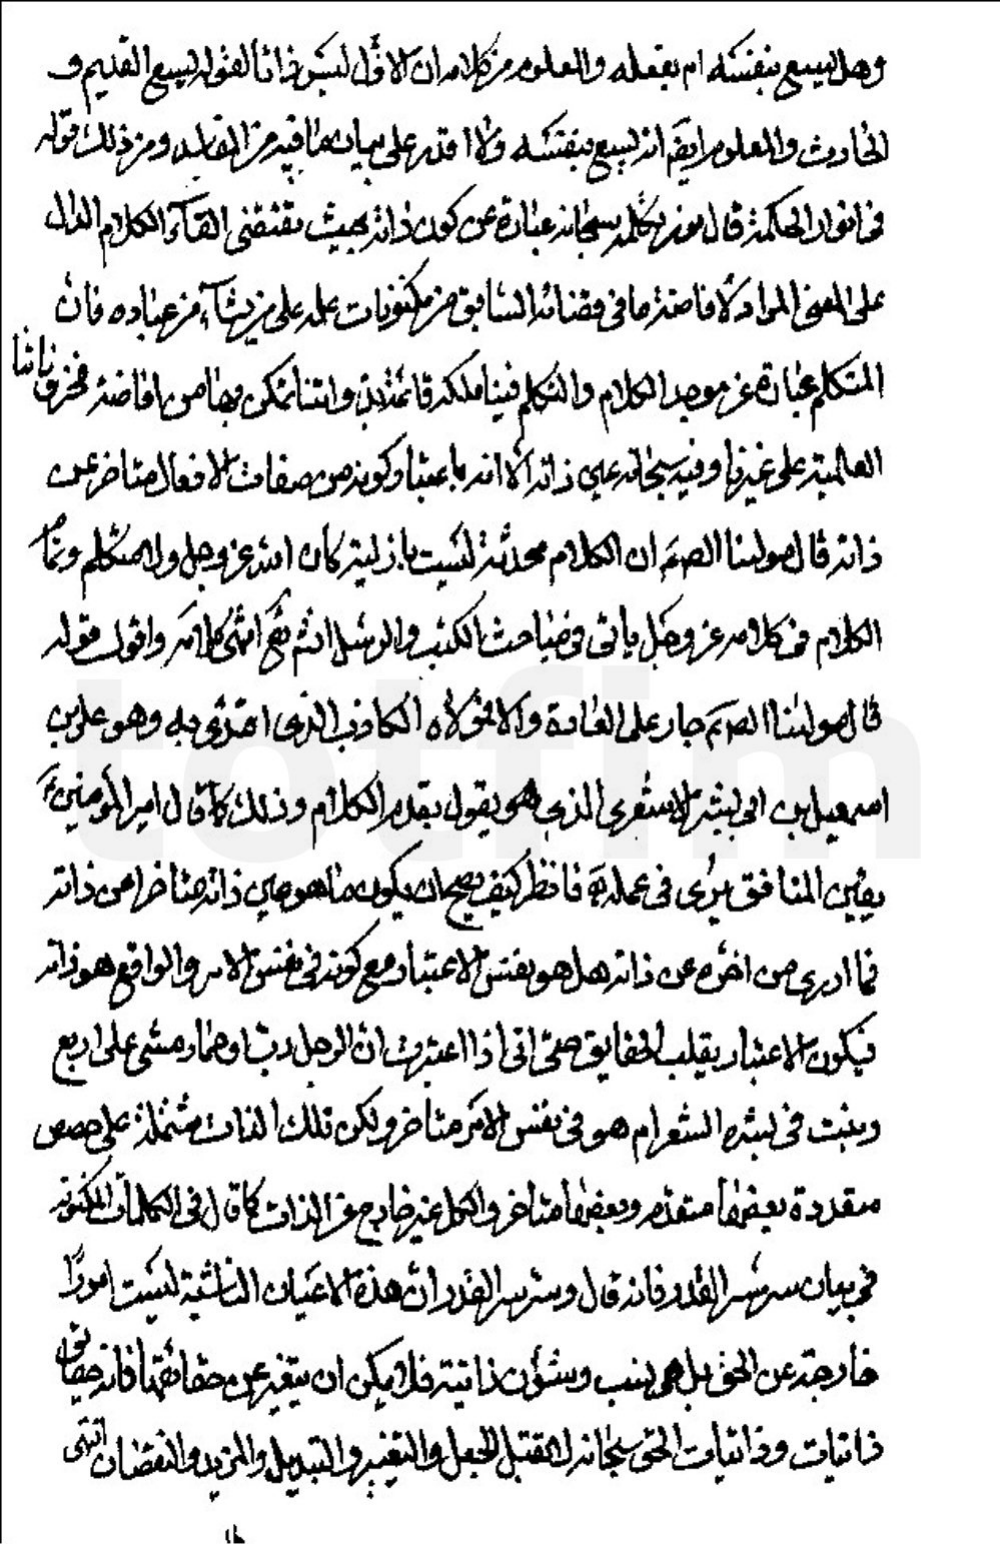 وهل يسع بنفسه ام بفعله والمعلوم من كلامه ان الاول ليس ذاتا لقوله ليسع القديم و
الحادث والمعلوم ايضا انه يسع بنفسه ولا اقدر على بيان ما فيه من المفاسد ومن ذلك قوله
في انوار الحكمة قال نور تكلمه سبحانه عبارة عن كون ذاته بحيث تقتضي القاء الكلام الدال
على المعنى المراد لافاضة ما في قضائه السابق من مكنونات علمه على من يشاء من عباده فان
المتكلم عبارة عن موجد الكلام والتكلم فينا ملكة قائمة بذواتنا نتمكن بها من افاضة مخزوناتنا
العلمية على غيرنا وفيه سبحانه عين ذاته الا انه باعتبار كونه من صفات الافعال متاخر عن
ذاته قال مولينا الصادق ان الكلام محدثة ليست بازلية كان الله عز وجل ولا متكلم وتمام
الكلام في كلامه عز وجل ياتي في مباحث الكتب والرسل انشاء الله تع انتهى كلامه واقول قوله
قال مولينا الصادق جار على العادة والا فمولاه الكاذب الذي اقتدى به وهو علي بن
اسمعيل بن ابي بشر الاشعري الذي هو يقول بقدم الكلام وذلك كما قال امير المؤمنين
يقين المنافق يرى في عمله فانظر كيف يصح ان يكون ما هو عين ذاته متاخرا عن ذاته
فما ادري من اخره عن ذاته هل هو بنفس الاعتبار مع كونه في نفس الامر والواقع هو ذاته
فيكون الاعتبار يقلب الحقايق حتى اني اذا اعتبرت ان الرجل دبا او حمار مشى على اربع
ونبت في بشره الشعر ام هو في نفس الامر متاخر ولكن تلك الذات مشتملة على حصص
متعددة بعضها متقدم وبعضها متاخر والكل غير خارج عن الذات كما قال في الكلمات المكنونة
في بيان سر سر القدر فانه قال وسر سر القدر ان هذه الاعيان الثابتة ليست امورا
خارجة عن الحق بل هي نسب وشؤن ذاتية فلا يمكن ان تتغير عن حقائقها فانها حقائق
ذاتيات وذاتيات الحق سبحانه لا تقبل الجعل والتغيير والتبديل والمزيد والنقصان انتهى